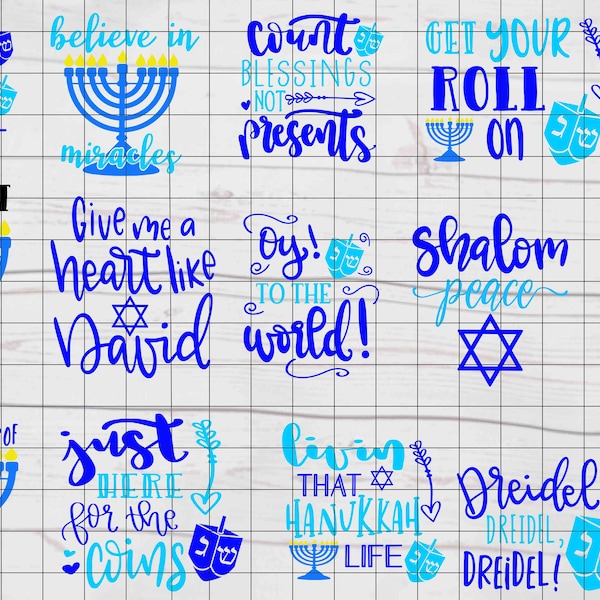 believe in
miracles
count
BLESSINGS
NOT
presents
GET YOUR
ROLL
ON
Give me a
heart like
David
oy!
TO THE
world!
shalom
peace
OF
just
HERE
for the
coins
livin
THAT
HANUKKAH
LIFE
Dreidel
DREIDEL,
DREIDEL!